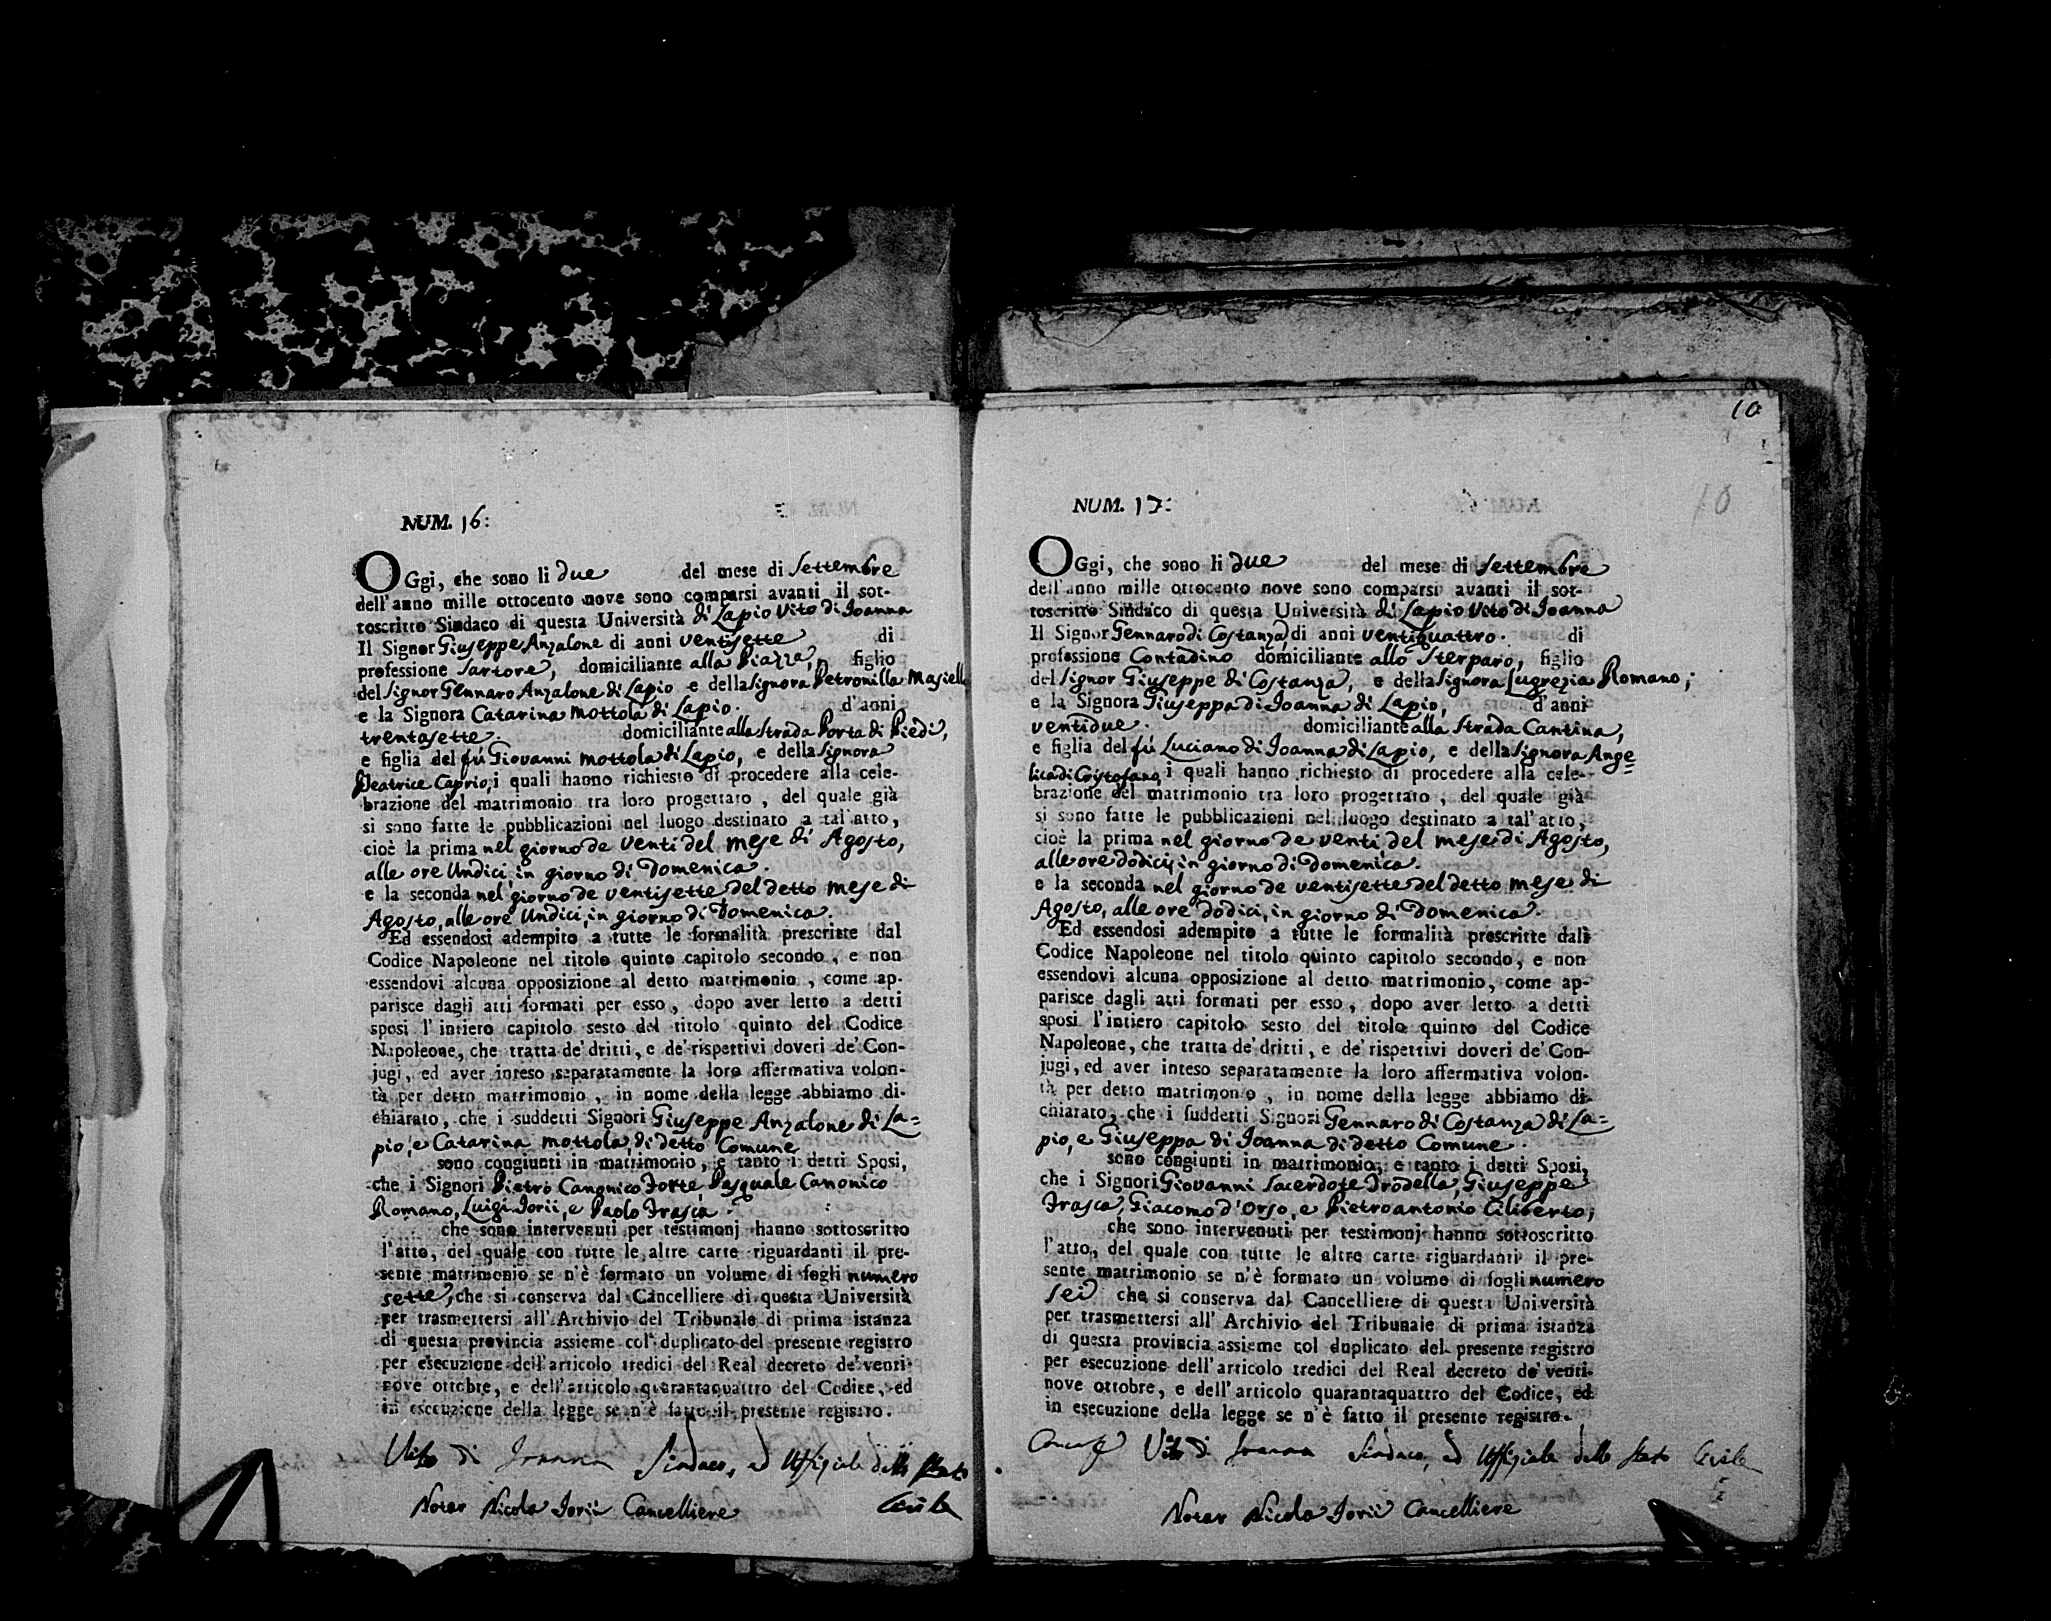 NUM. 16:
OGgi, che sono li due del mese di Settembre
dell'anno mille ottocento nove sono comparsi avanti il sot-
toscritto Sindaco di questa Università di Lapio Vito di Ioanna
Il Signor Giuseppe Anzalone di anni ventisette di
professione Sartore, domiciliante alla Piazza, figlio
del Signor Gennaro Anzalone di Lapio e della Signora Petronilla Masiello
e la Signora Catarina Mottola di Lapio. d'anni
trentasette. domiciliante alla Strada Porta di Piedi,
e figlia del fù Giovanni Mottola di Lapio, e della Signora
Beatrice Caprio, i quali hanno richiesto di procedere alla cele-
brazione del matrimonio tra loro progettato, del quale già
si sono fatte le pubblicazioni nel luogo destinato a tal'atto,
cioè la prima nel giorno de venti del mese di Agosto,
alle ore Undici in giorno di Domenica.
e la seconda nel giorno de ventisette del detto mese di
Agosto, alle ore Undici, in giorno di Domenica.
Ed essendosi adempito a tutte le formalità prescritte dal
Codice Napoleone nel titolo quinto capitolo secondo, e non
essendovi alcuna opposizione al detto matrimonio, come ap-
parisce dagli atti formati per esso, dopo aver letto a detti
sposi l'intiero capitolo sesto del titolo quinto del Codice
Napoleone, che tratta de' dritti, e de' rispettivi doveri de' Con-
jugi, ed aver inteso separatamente la loro affermativa volon-
tà per detto matrimonio, in nome della legge abbiamo di-
chiarato, che i suddetti Signori Giuseppe Anzalone di La=
pio, e Catarina Mottola, di detto Comune
sono congiunti in matrimonio, e tanto i detti Sposi,
che i Signori Pietro Canonico Forte, Pasquale Canonico
Romano, Luigi Iorii, e Paolo Frasca.
che sono intervenuti per testimonj hanno sottoscritto
l'atto, del quale con tutte le altre carte riguardanti il pre-
sente matrimonio se n'è formato un volume di fogli numero
sette, che si conserva dal Cancelliere di questa Università
per trasmettersi all'Archivio del Tribunale di prima istanza
di questa provincia assieme col duplicato del presente registro
per esecuzione dell'articolo tredici del Real decreto de' venti-
nove ottobre, e dell'articolo quarantaquattro del Codice, ed
in esecuzione della legge se n'è fatto il presente registro.
Vito di Ioanna Sindaco, ed Uffiziale dello Stato
Civile
Notar Nicola Iorii Cancelliere
10
10
NUM. 17:
OGgi, che sono li due del mese di Settembre
dell'anno mille ottocento nove sono comparsi avanti il sot-
toscritto Sindaco di questa Università di Lapio Vito di Ioanna
Il Signor Gennaro di Costanza, di anni ventiquattro. di
professione Contadino domiciliante allo Sterparo, figlio
del Signor Giuseppe di Costanza, e della Signora Lugrezia Romano;
e la Signora Giuseppa di Ioanna di Lapio, d'anni
ventidue. domiciliante alla Strada Cantina,
e figlia del fù Luciano di Ioanna di Lapio, e della Signora Ange=
lica di Cristofano, i quali hanno richiesto di procedere alla cele-
brazione del matrimonio tra loro progettato, del quale già
si sono fatte le pubblicazioni nel luogo destinato a tal'atto,
cioè la prima nel giorno de venti del mese di Agosto,
alle ore dodici, in giorno di Domenica.
e la seconda nel giorno de ventisette del detto mese di
Agosto, alle ore dodici, in giorno di Domenica.
Ed essendosi adempito a tutte le formalità prescritte dal
Codice Napoleone nel titolo quinto capitolo secondo, e non
essendovi alcuna opposizione al detto matrimonio, come ap-
parisce dagli atti formati per esso, dopo aver letto a detti
sposi l'intiero capitolo sesto del titolo quinto del Codice
Napoleone, che tratta de' dritti, e de' rispettivi doveri de' Con-
jugi, ed aver inteso separatamente la loro affermativa volon-
tà per detto matrimonio, in nome della legge abbiamo di-
chiarato, che i suddetti Signori Gennaro di Costanza di La=
pio, e Giuseppa di Ioanna di detto Comune.
sono congiunti in matrimonio, e tanto i detti Sposi,
che i Signori Giovanni Sacerdote Trodella, Giuseppe
Frasca, Giacomo d'Orso, e Pietroantonio Ciliberto;
che sono intervenuti per testimonj hanno sottoscritto
l'atto, del quale con tutte le altre carte riguardanti il pre-
sente matrimonio se n'è formato un volume di fogli numero
sei che si conserva dal Cancelliere di questa Università
per trasmettersi all'Archivio del Tribunale di prima istanza
di questa provincia assieme col duplicato del presente registro
per esecuzione dell'articolo tredici del Real decreto de' venti-
nove ottobre, e dell'articolo quarantaquattro del Codice, ed
in esecuzione della legge se n'è fatto il presente registro.
Vito di Ioanna Sindaco, ed Uffiziale dello Stato Civile
Notar Nicola Iorii Cancelliere